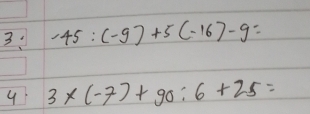 3. -45 : (-9) + 5 (-16) - 9 =
4. 3 × (-7) + 90 : 6 + 25 =